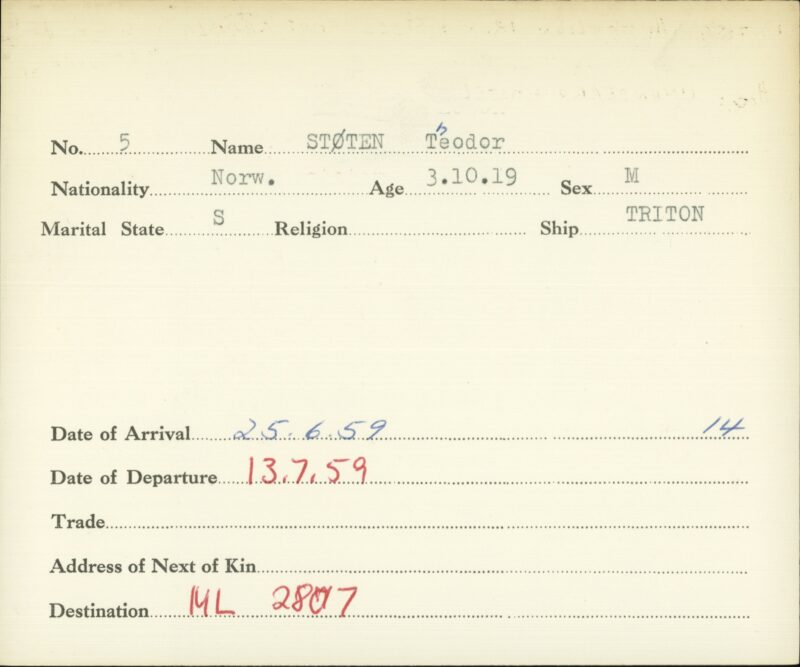 No. 5 Name STØTEN Theodor
Nationality Norw. Age 3.10.19 Sex M
Marital State S Religion Ship TRITON
Date of Arrival 25.6.59 14
Date of Departure 13.7.59
Trade
Address of Next of Kin
Destination ML 2807